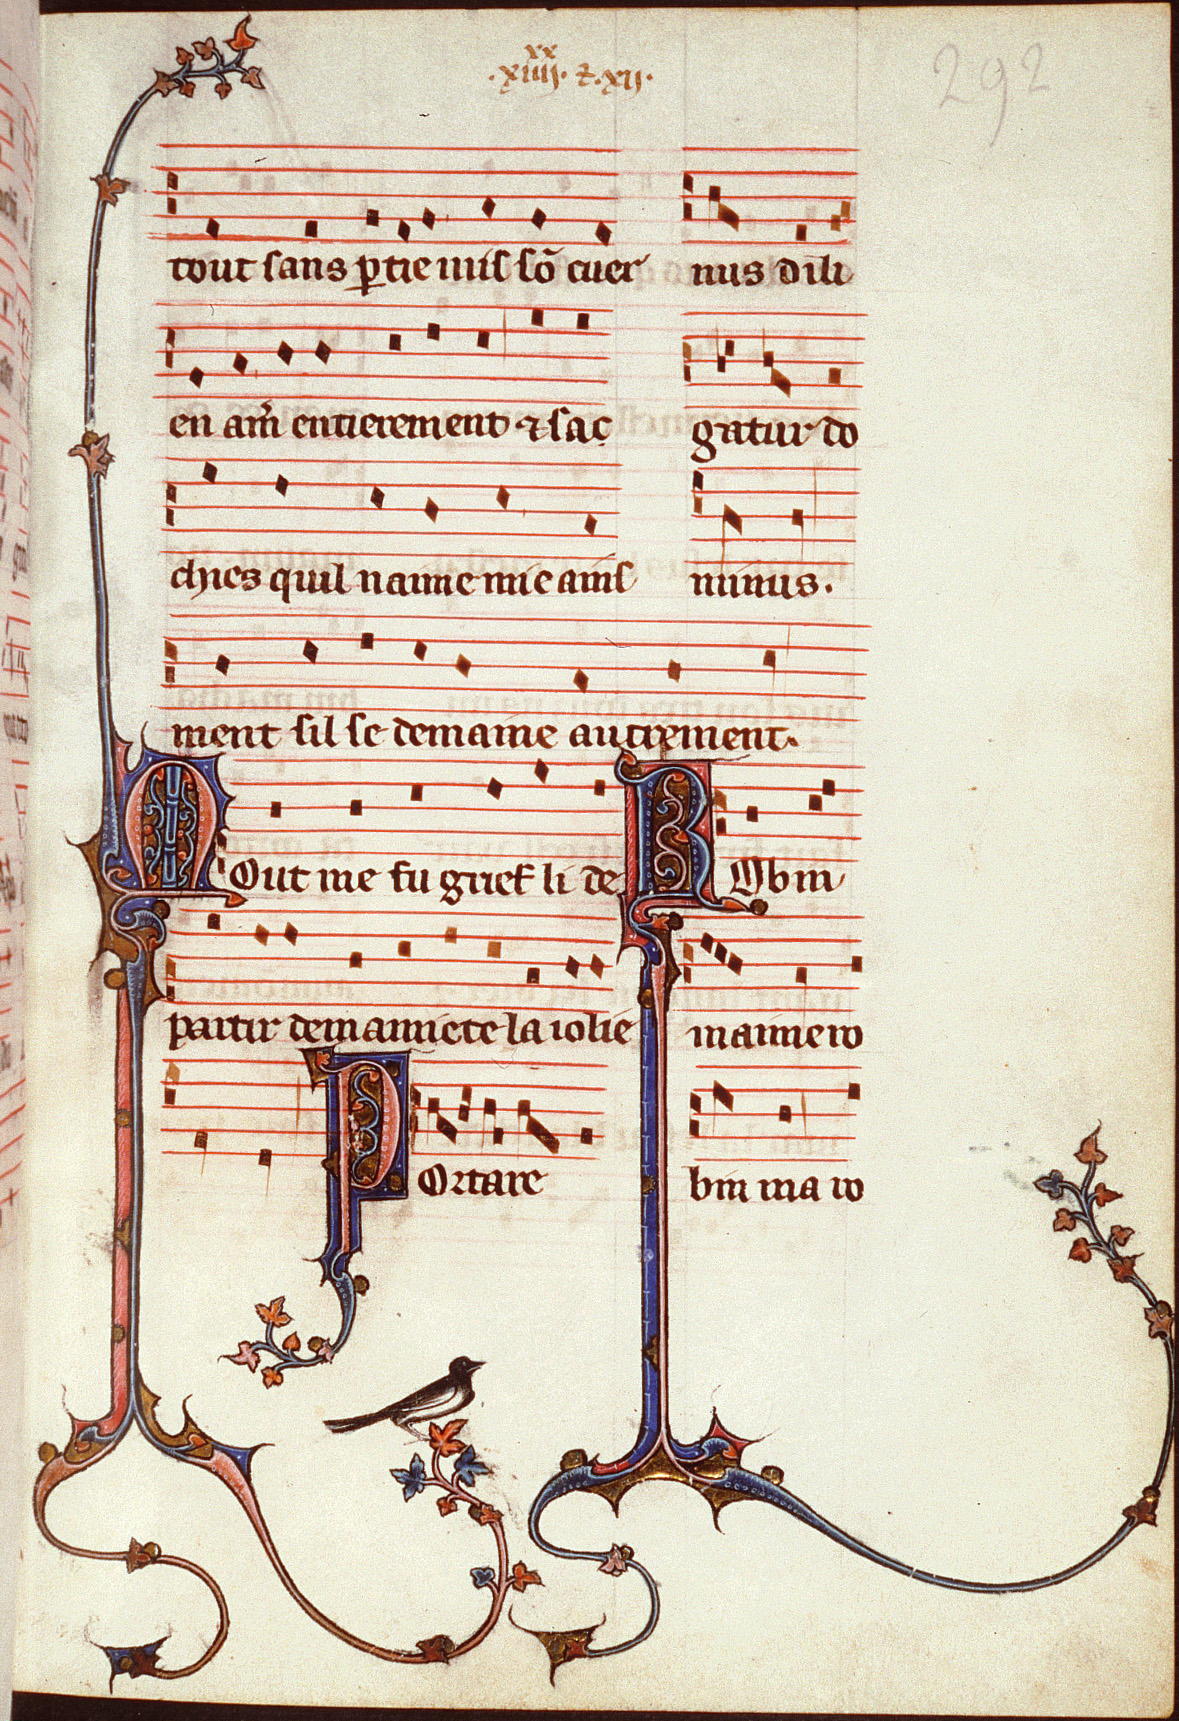 xx
.xiiij. ⁊.xij.
292
tout sans ꝑtie mis sõ cuer
en am̃ entierement ⁊ sac
chies quil naime mie ains
ment sil se demaine autrement.
Mout me fu grief li de
partir de mamiete la iolie
Portare
nus dili
gatur do
minus.
Robin
maime ro
bin ma ro